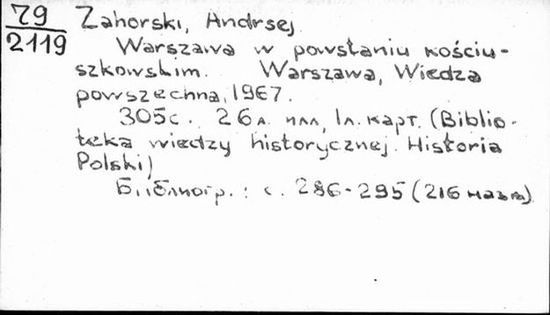 79
2119
Zahorski, Andrsej
Warszawa w powstaniu kościu-
szkowskim. Warszawa, Wiedza
powszechna, 1967.
305с. 26л. илл, 1л. карт. (Biblio-
teka wiedzy historycznej. Historia
Polski)
Библиогр.: с. 286-295 (216 назв)